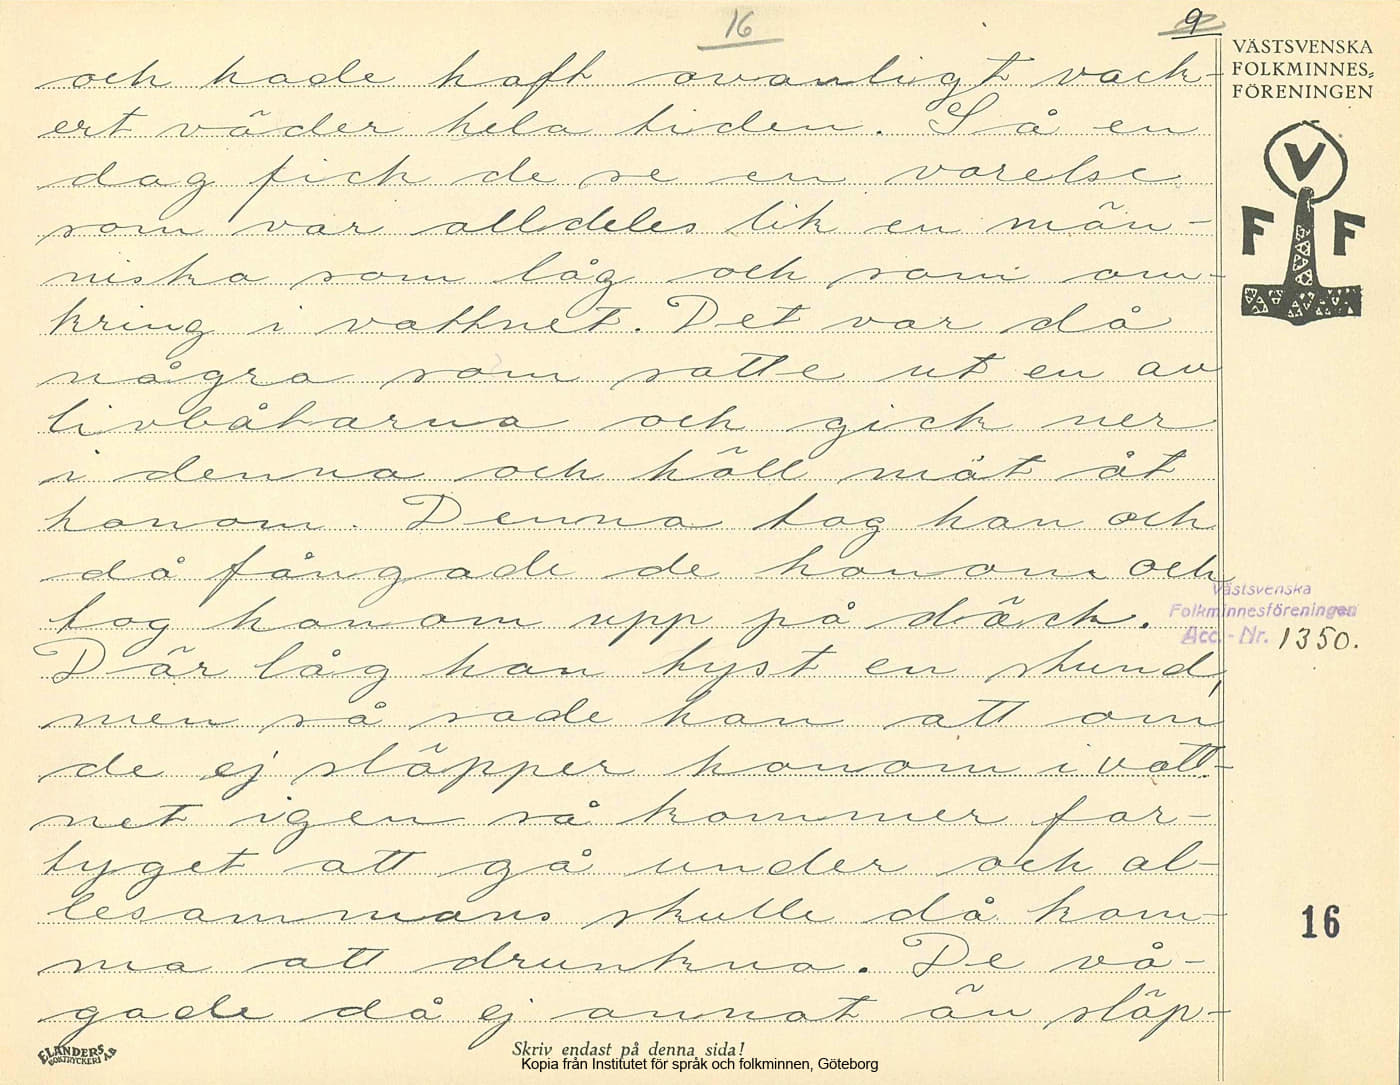 16
9
VÄSTSVENSKA
FOLKMINNES=
FÖRENINGEN
V
F F
och hade haft ovanligt vack-
ert väder hela tiden. Så en
dag fick de se en varelse
som var alldeles lik en män-
niska som låg och som om-
kring i vattnet. Det var då
några som satte ut en av
livbåtarna och gick ner
i denna och höll mat åt
honom. Denna tog han och
då fångade de honom och
tog honom upp på däck.
Där låg han tyst en stund,
men så sade han att om
de ej släpper honom i vatt-
net igen så kommer far-
tyget att gå under och al-
lesammans skulle då kom-
ma att drunkna. De vå-
gade då ej annat än släp-
Västsvenska
Folkminnesföreningen
Acc.-Nr. 1350.
16
ELANDERS
BOKTRYCKERI AB
Skriv endast på denna sida!
Kopia från Institutet för språk och folkminnen, Göteborg